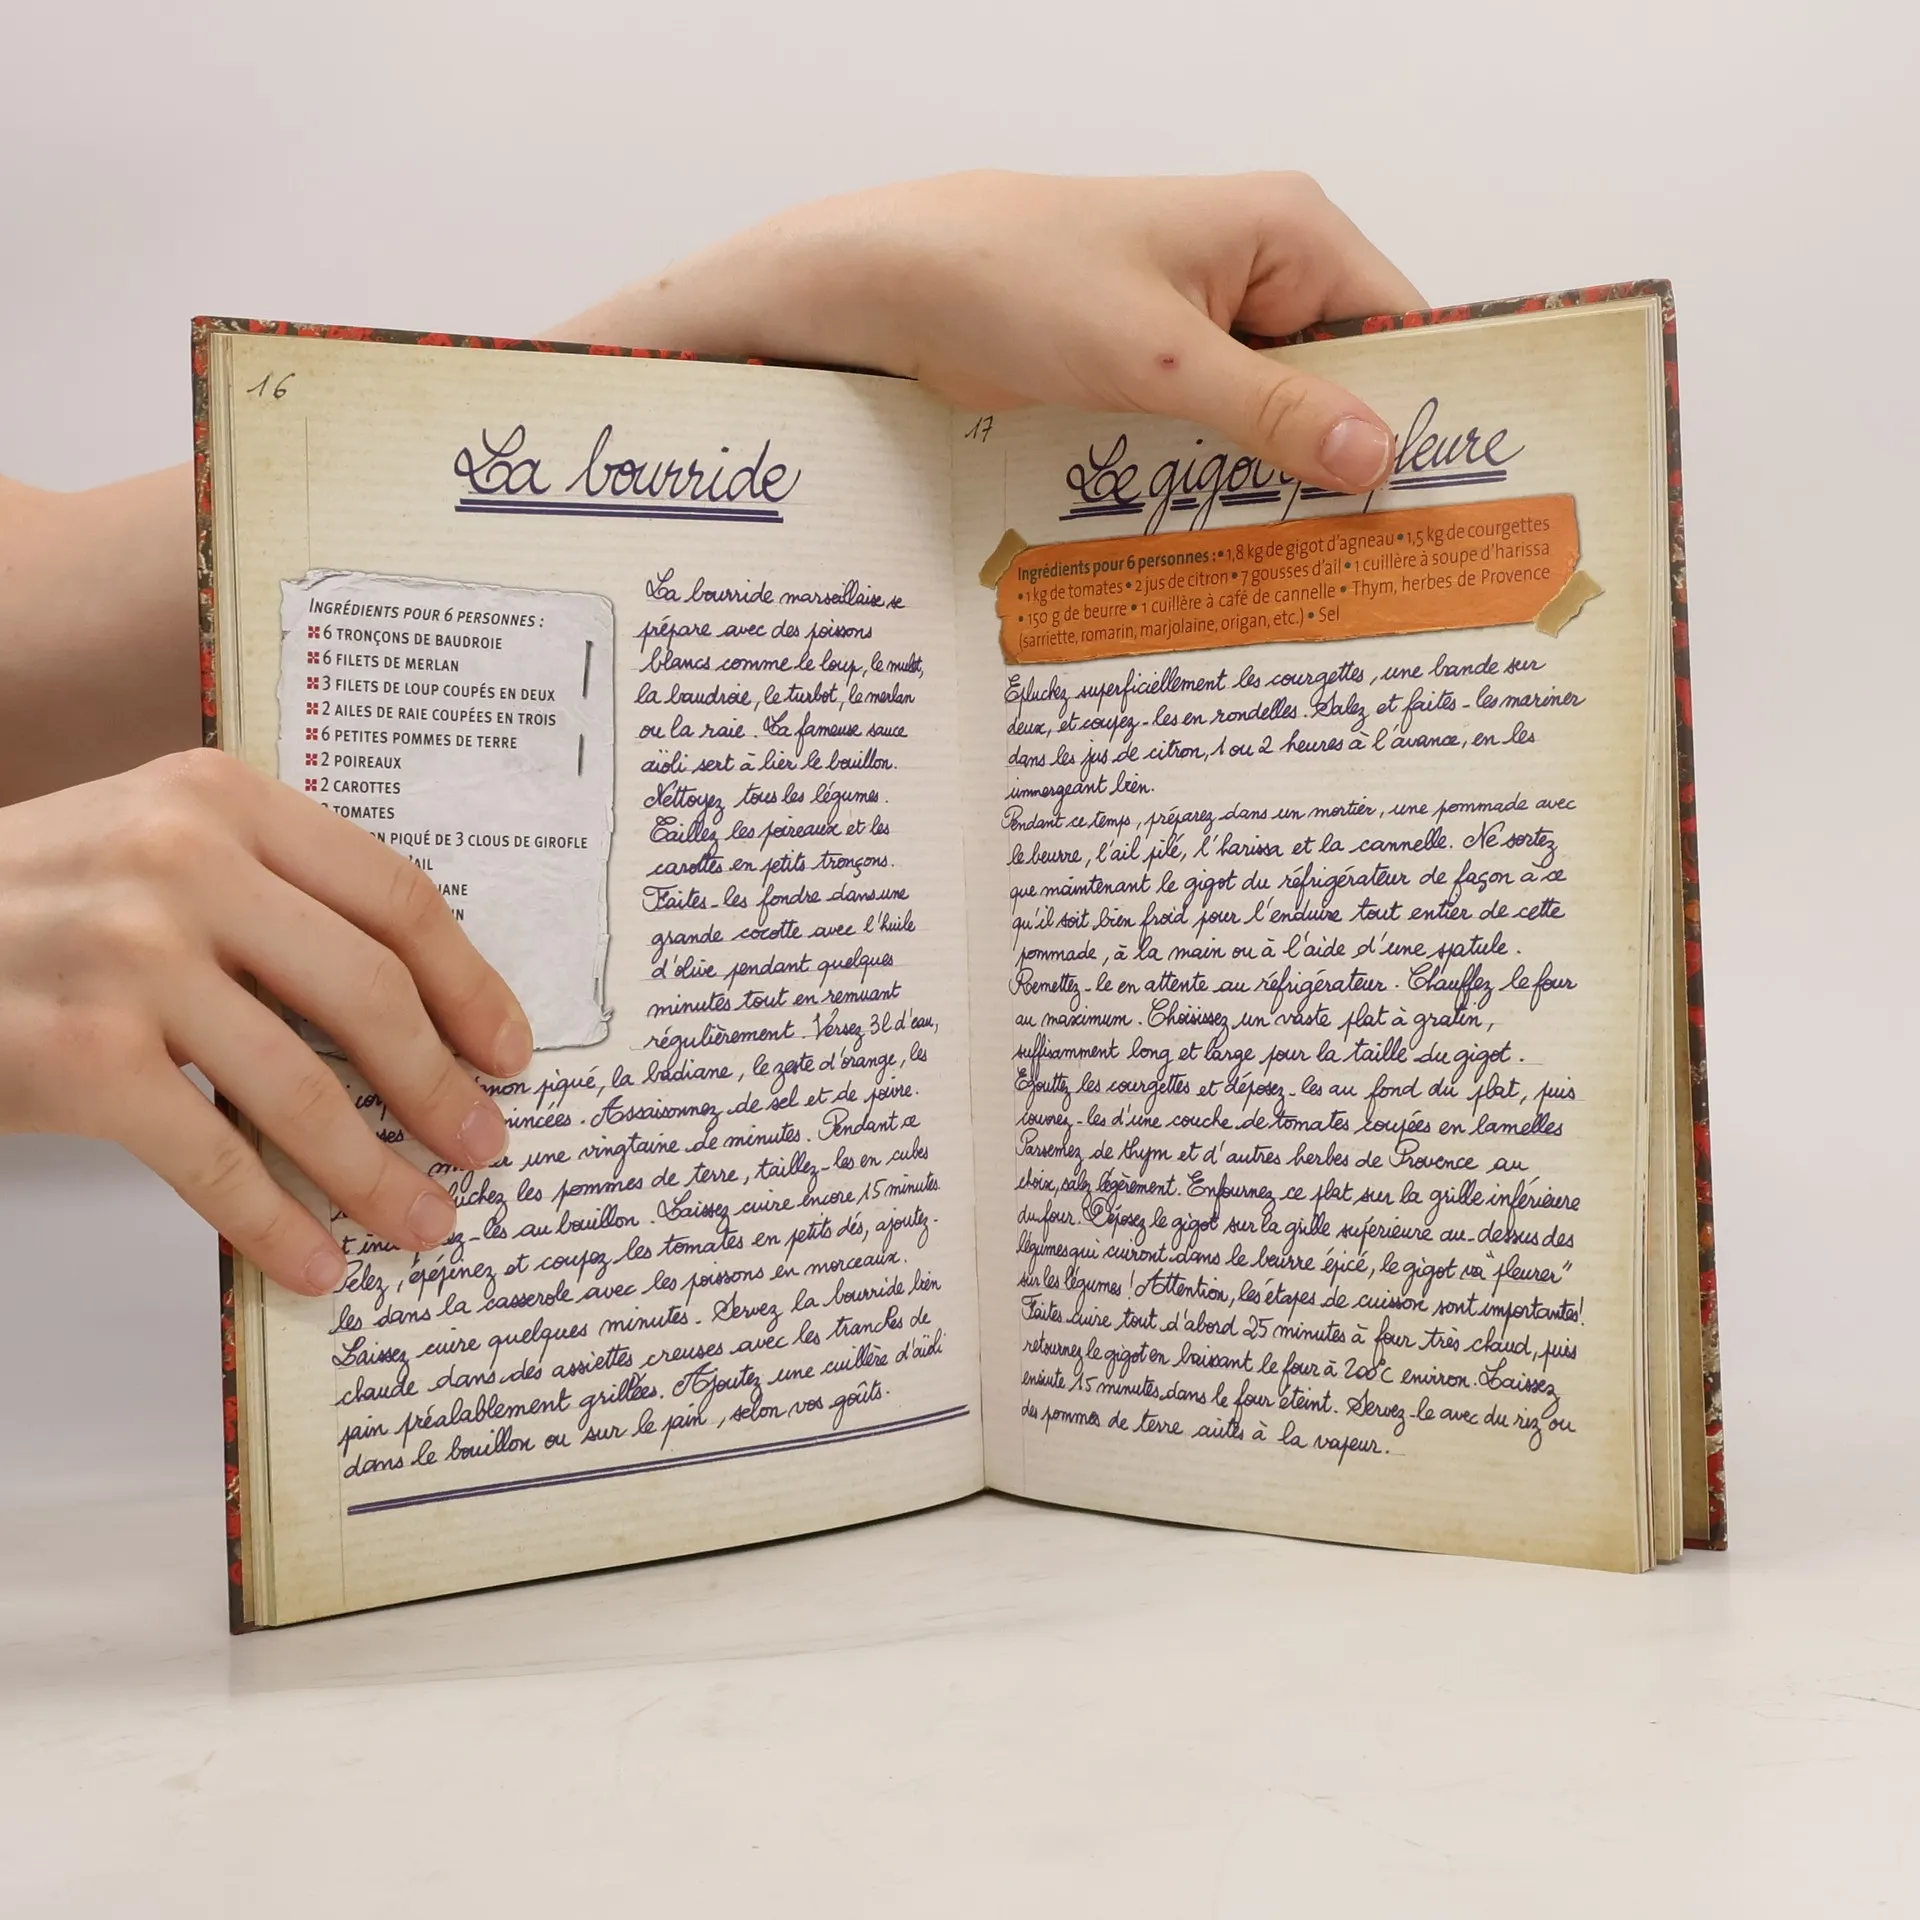 16
La bourride
INGRÉDIENTS POUR 6 PERSONNES :
6 TRONÇONS DE BAUDROIE
6 FILETS DE MERLAN
3 FILETS DE LOUP COUPÉS EN DEUX
2 AILES DE RAIE COUPÉES EN TROIS
6 PETITES POMMES DE TERRE
2 POIREAUX
2 CAROTTES
TOMATES
PIQUÉ DE 3 CLOUS DE GIROFLE
La bourride marseillaise se
prépare avec des poissons
blancs comme le loup, le mulet,
la baudroie, le turbot, le merlan
ou la raie. La fameuse sauce
aïoli sert à lier le bouillon.
Nettoyez tous les légumes.
Taillez les poireaux et les
carottes en petits tronçons.
Faites-les fondre dans une
grande cocotte avec l'huile
d'olive pendant quelques
minutes tout en remuant
régulièrement. Versez 3l d'eau,
piqué, la badiane, le zeste d'orange, les
Assaisonnez de sel et de poivre.
une vingtaine de minutes. Pendant ce
les pommes de terre, taillez-les en cubes
les au bouillon. Laissez cuire encore 15 minutes.
Pelez, épépinez et coupez les tomates en petits dés, ajoutez-
les dans la casserole avec les poissons en morceaux.
Laissez cuire quelques minutes. Servez la bourride bien
chaude dans des assiettes creuses avec les tranches de
pain préalablement grillées. Ajoutez une cuillère d'aïoli
dans le bouillon ou sur le pain, selon vos goûts.
17
Le gigot pleure
Ingrédients pour 6 personnes : • 1,8 kg de gigot d'agneau • 1,5 kg de courgettes
• 1 kg de tomates • 2 jus de citron • 7 gousses d'ail • 1 cuillère à soupe d'harissa
• 150 g de beurre • 1 cuillère à café de cannelle • Thym, herbes de Provence
(sarriette, romarin, marjolaine, origan, etc.) • Sel
Epluchez superficiellement les courgettes, une bande sur
deux, et coupez-les en rondelles. Salez et faites-les mariner
dans les jus de citron, 1 ou 2 heures à l'avance, en les
immergeant bien.
Pendant ce temps, préparez dans un mortier, une pommade avec
le beurre, l'ail pilé, l'harissa et la cannelle. Ne sortez
que maintenant le gigot du réfrigérateur de façon à ce
qu'il soit bien froid pour l'enduire tout entier de cette
pommade, à la main ou à l'aide d'une spatule.
Remettez-le en attente au réfrigérateur. Chauffez le four
au maximum. Choisissez un vaste plat à gratin,
suffisamment long et large pour la taille du gigot.
Egouttez les courgettes et déposez-les au fond du plat, puis
couvrez-les d'une couche de tomates coupées en lamelles
Parsemez de thym et d'autres herbes de Provence au
choix, salez légèrement. Enfournez ce plat sur la grille inférieure
du four. Déposez le gigot sur la grille supérieure au-dessus des
légumes qui cuiront dans le beurre épicé, le gigot va "pleurer"
sur les légumes ! Attention, les étapes de cuisson sont importantes !
Faites cuire tout d'abord 25 minutes à four très chaud, puis
retournez le gigot en baissant le four à 200°C environ. Laissez
ensuite 15 minutes dans le four éteint. Servez-le avec du riz ou
des pommes de terre à la vapeur.